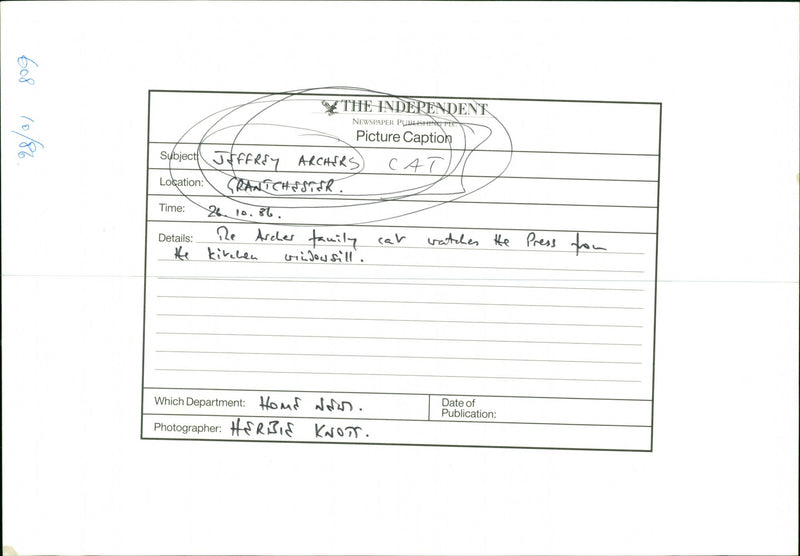 608 10/86.
THE INDEPENDENT
NEWSPAPER PUBLISHING PLC
Picture Caption
Subject: JEFFREY ARCHERS CAT
Location: GRANTCHESTER.
Time: 26.10.86.
Details: The Archer family cat watches the Press from
the kitchen windowsill.
Which Department: HOME NEWS.
Date of
Publication:
Photographer: HERBIE KNOTT.